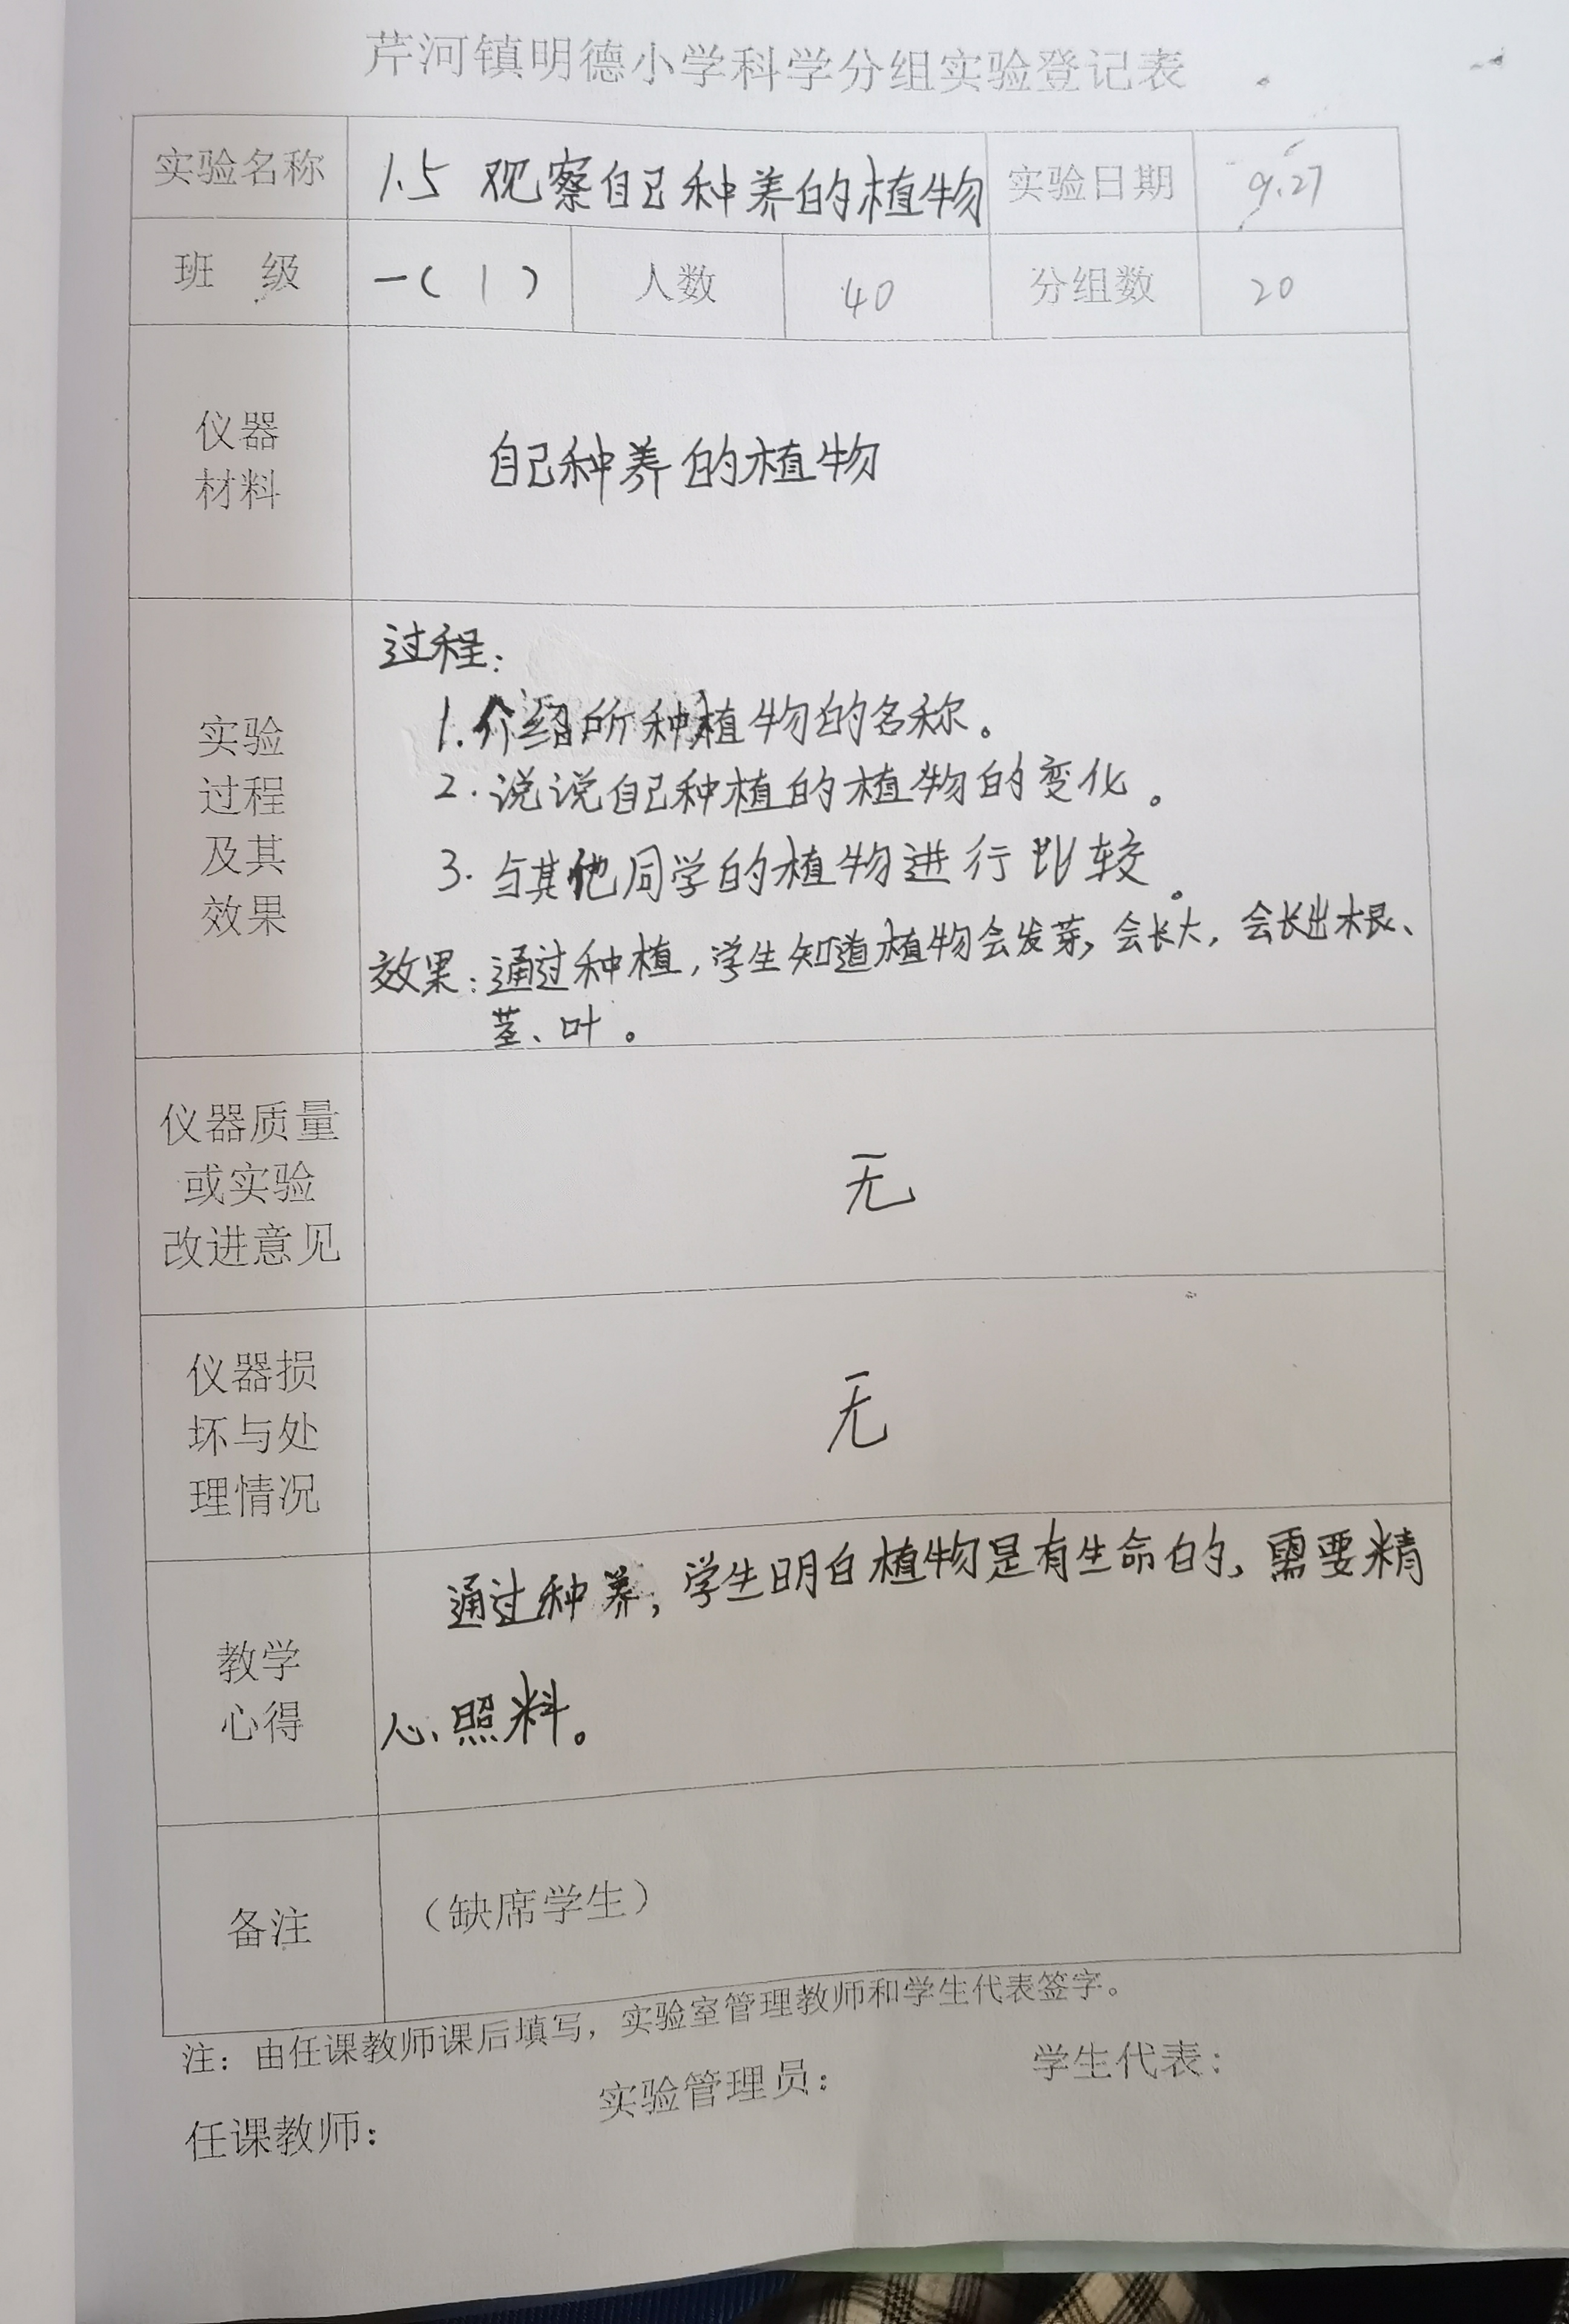 芹河镇明德小学科学分组实验登记表
实验名称 1.5 观察自己种养的植物 实验日期 9.27
班 级 一(1) 人数 40 分组数 20
仪器
材料
自己种养的植物
实验
过程
及其
效果
过程:
1.介绍所种植物的名称。
2.说说自己种植的植物的变化。
3.与其他同学的植物进行比较。
效果:通过种植,学生知道植物会发芽,会长大,会长出根、
茎、叶。
仪器质量
或实验
改进意见
无
仪器损
坏与处
理情况
无
教学
心得
通过种养,学生明白植物是有生命的,需要精
心照料。
备注
(缺席学生)
注:由任课教师课后填写,实验室管理教师和学生代表签字。
任课教师: 实验管理员: 学生代表: